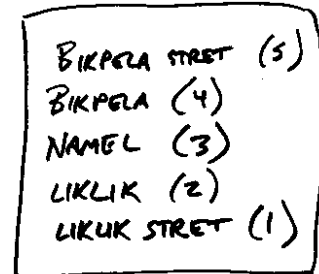 BIKPELA STRET (5)
BIKPELA (4)
NAMEL (3)
LIKLIK (2)
LIKLIK STRET (1)